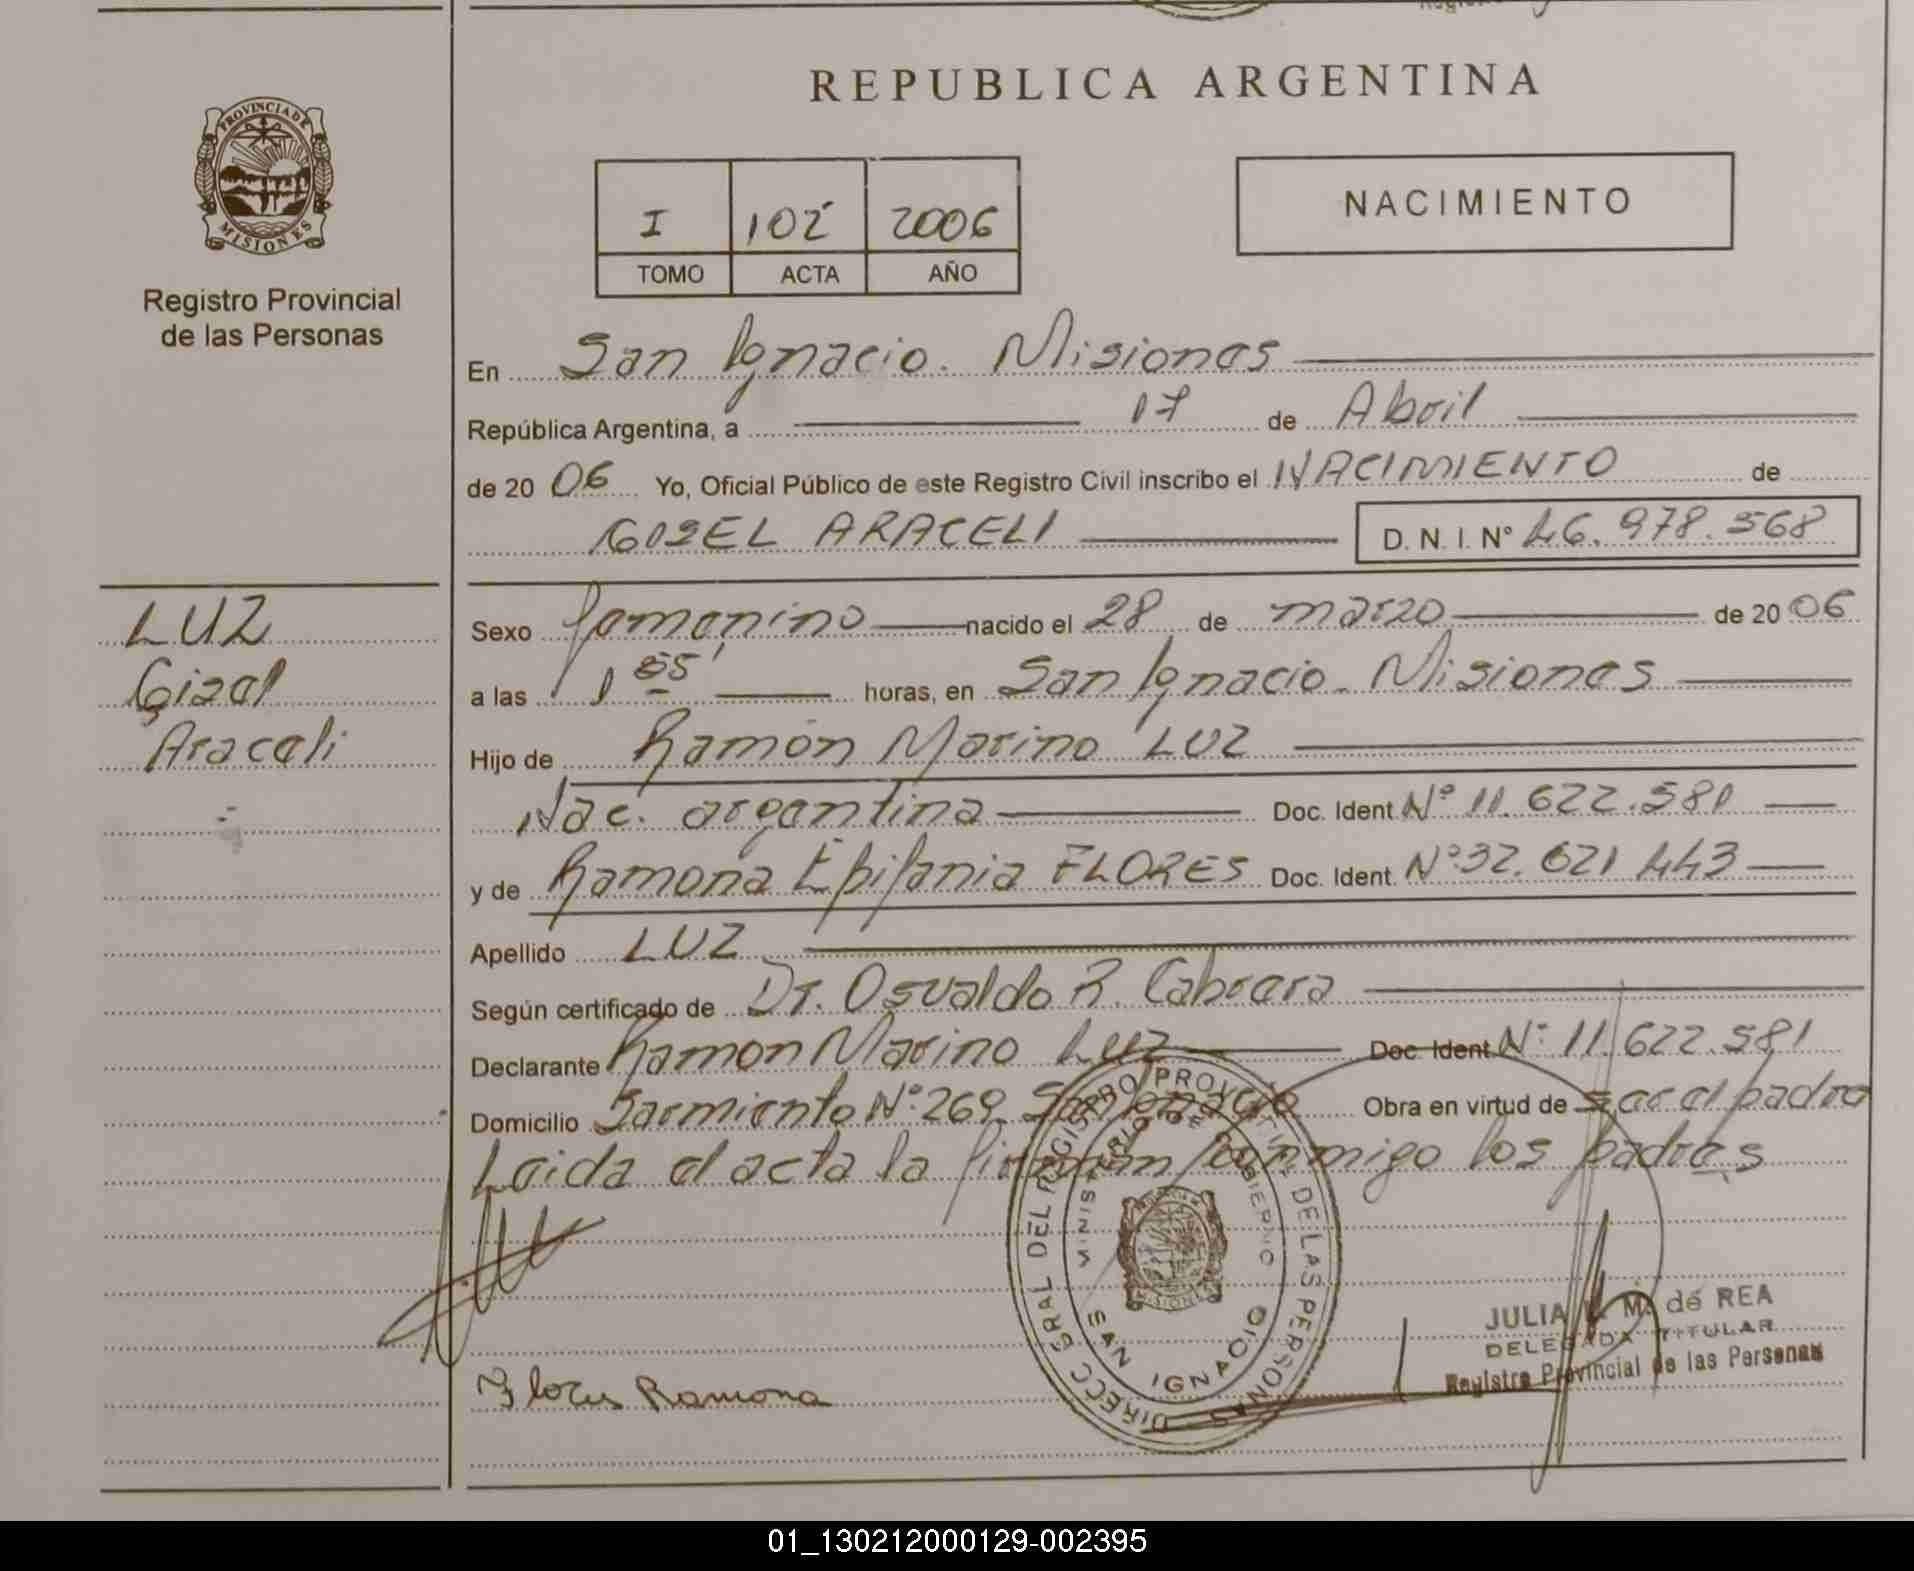 REPUBLICA ARGENTINA
PROVINCIA DE
MISIONES
Registro Provincial
de las Personas
I 102 2006
TOMO ACTA AÑO
NACIMIENTO
En San Ignacio. Misiones
República Argentina, a 17 de Abril
de 20 06 Yo, Oficial Público de este Registro Civil inscribo el NACIMIENTO de
GISEL ARACELI D. N. I. N° 46.978.568
LUZ
Gisel
Araceli
Sexo femenino nacido el 28 de marzo de 20 06
a las 1 55' horas, en San Ignacio. Misiones
Hijo de Ramón Marino LUZ
Nac. argentina Doc. Ident N° 11.622.581
y de Ramona Epifania FLORES Doc. Ident. N° 32.621.443
Apellido LUZ
Según certificado de Dr. Osvaldo R. Cabrera
Declarante Ramon Marino Luz Doc. Ident N° 11.622.581
Domicilio Sarmiento N° 269 San Ignacio Obra en virtud de ser el padre
Leida el acta la firman conmigo los padres
DIRECC GRAL DEL REGISTRO PROVINCIAL DE LAS PERSONAS
MINISTERIO DE GOBIERNO
MISIONES
SAN IGNACIO
JULIA M. de REA
DELEGADA TITULAR
Registro Provincial de las Personas
Flores Ramona
01_130212000129-002395